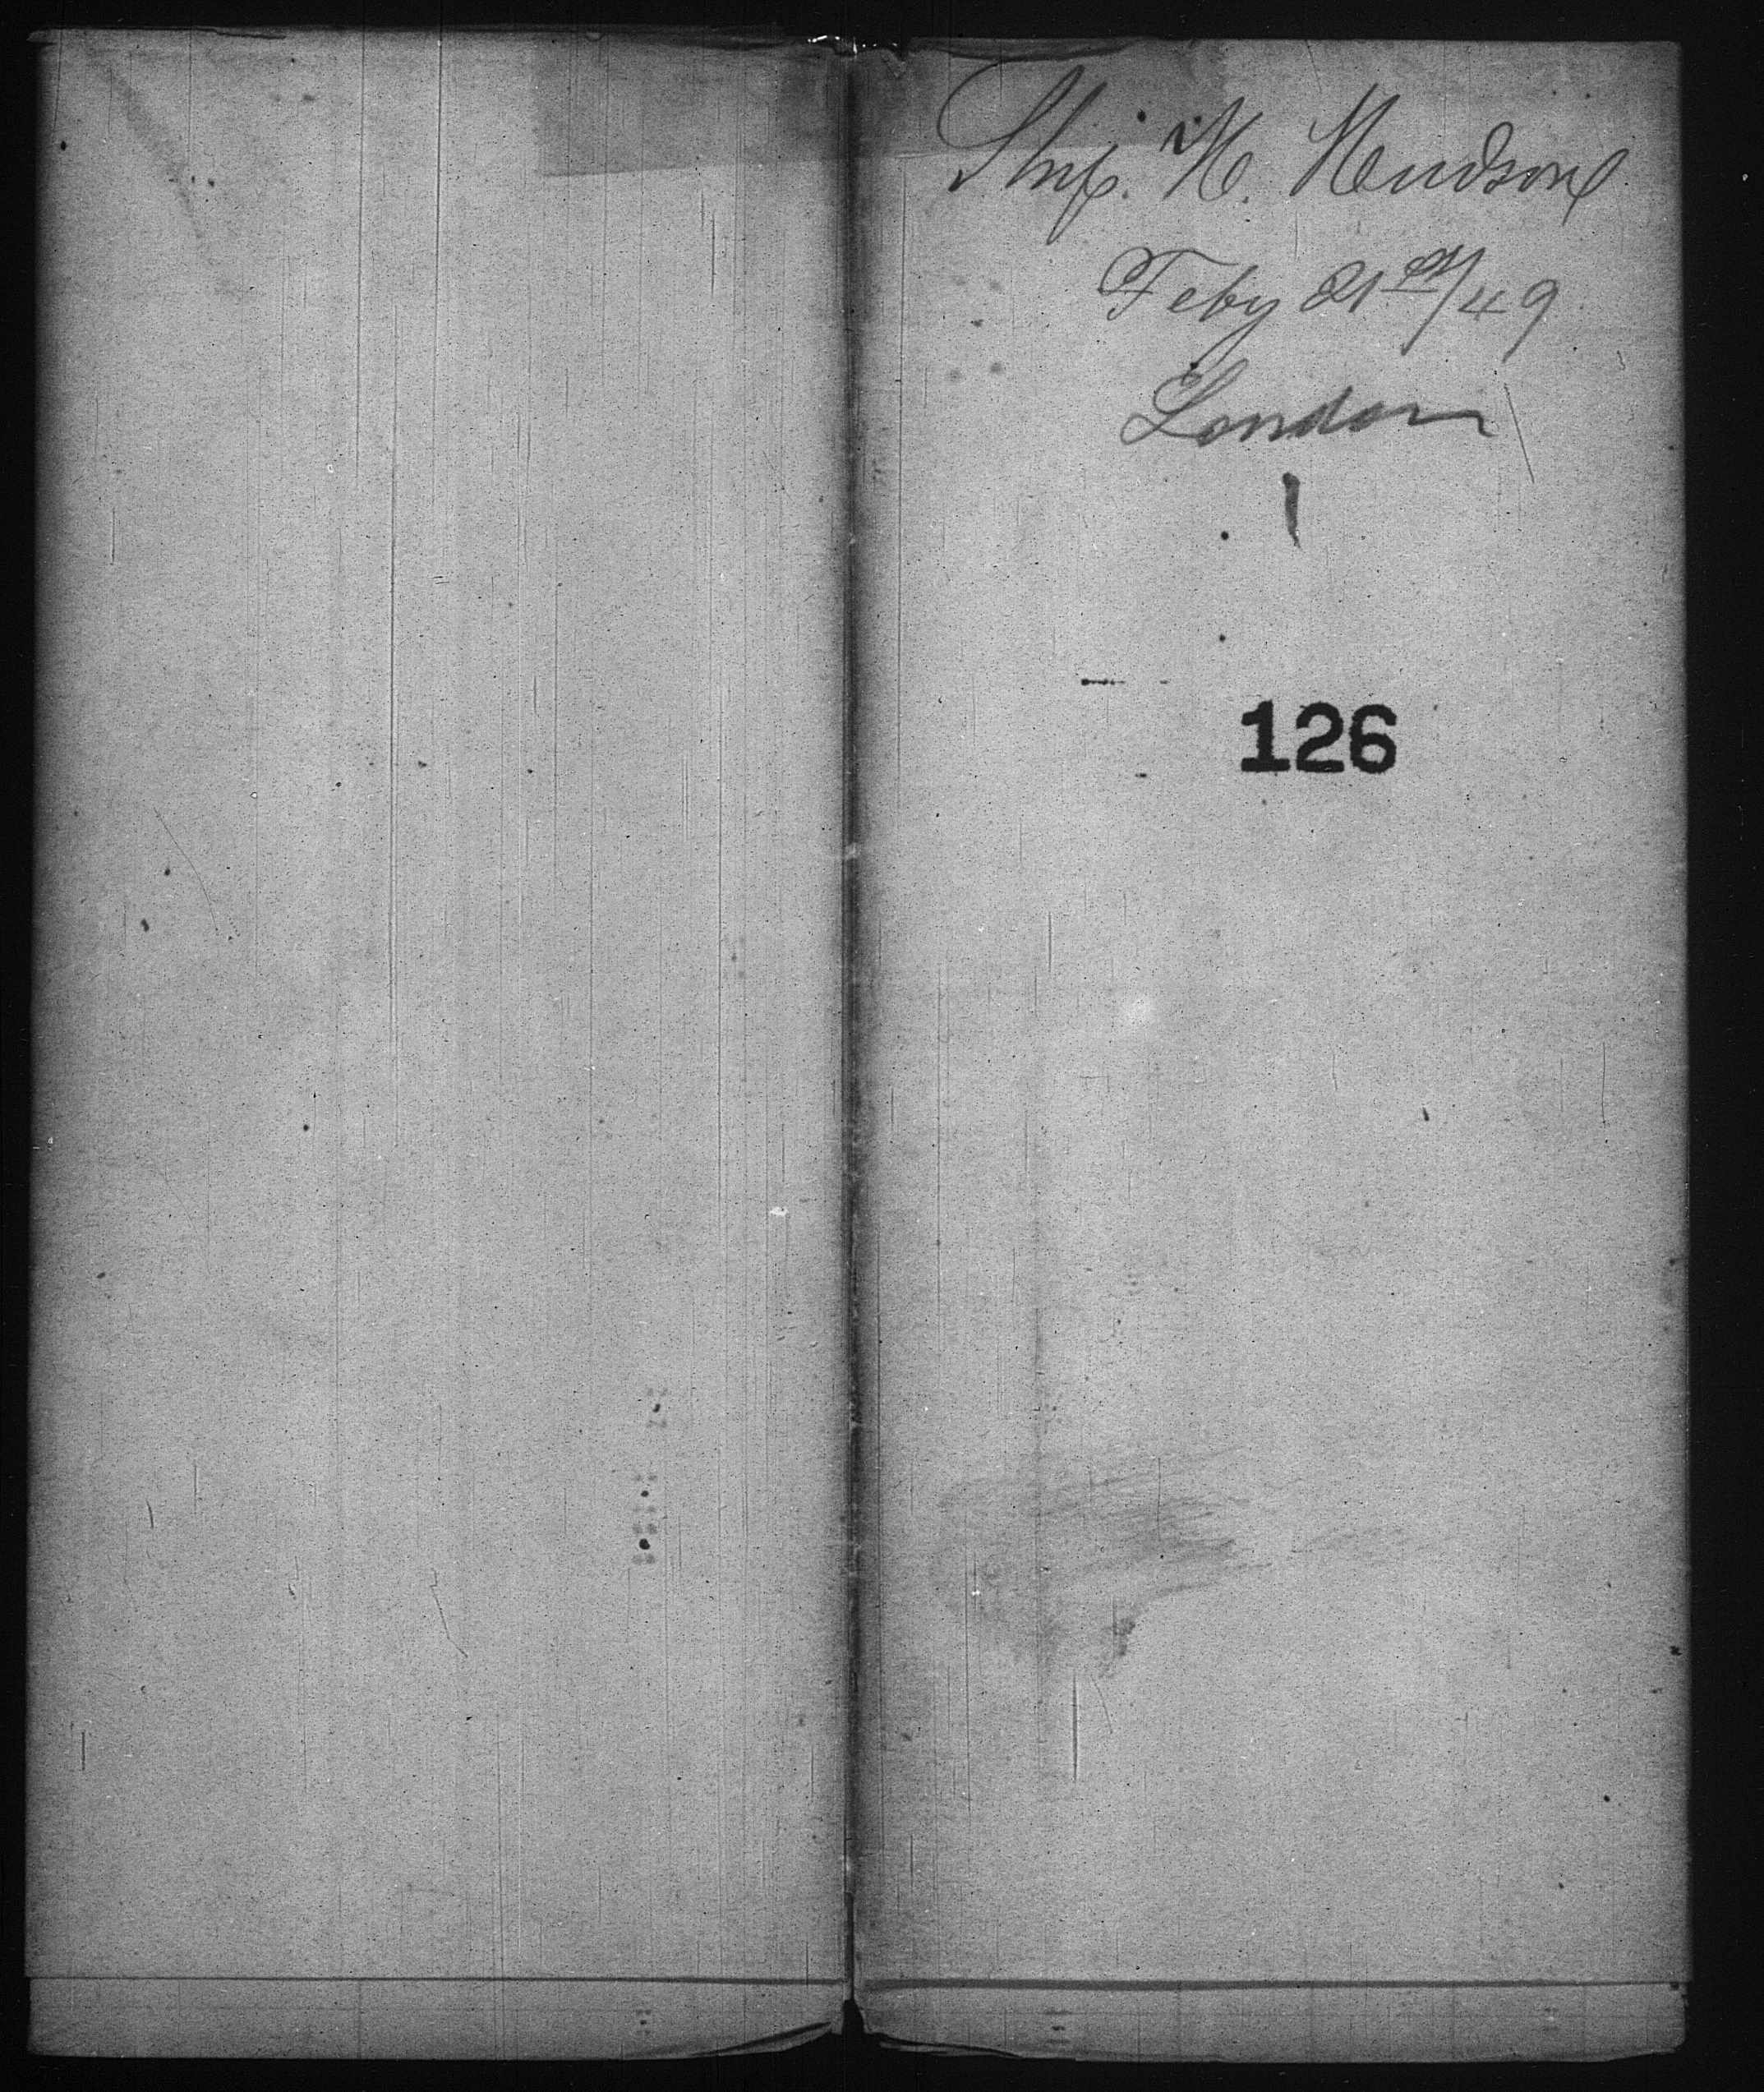 Ship. H. Hudson
Feby 21st/49
London
1
126